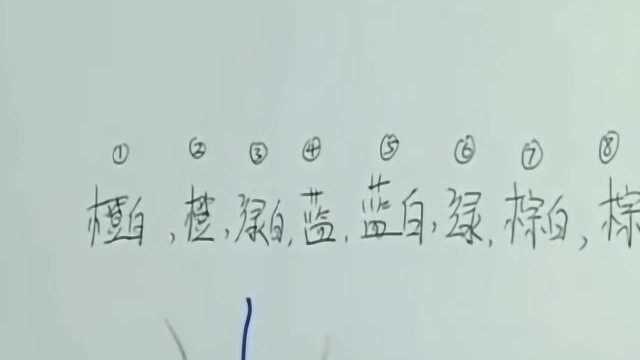 ① ② ③ ④ ⑤ ⑥ ⑦ ⑧
橙白,橙,绿白,蓝,蓝白,绿,棕白,棕